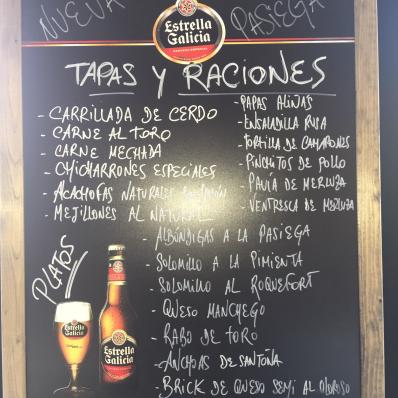 NUEVA PASIEGA
Estrella
Galicia
TAPAS Y RACIONES
- CARRILLADA DE CERDO
- CARNE AL TORO
- CARNE MECHADA
- CHICHARRONES ESPECIALES
- ALCACHOFAS NATURALES CON JAMÓN
- MEJILLONES AL NATURAL
- PAPAS ALIÑÁS
- ENSALADILLA RUSA
- TORTILLA DE CAMARONES
- PINCHITOS DE POLLO
- PAVÍA DE MERLUZA
- VENTRESCA DE MERLUZA
PLATOS
- ALBÓNDIGAS A LA PASIEGA
- SOLOMILLO A LA PIMIENTA
- SOLOMILLO AL ROQUEFORT
- QUESO MANCHEGO
- RABO DE TORO
- ANCHOAS DE SANTOÑA
- BRICK DE QUESO SEMI AL OLOROSO
Estrella
Galicia
Estrella
Galicia